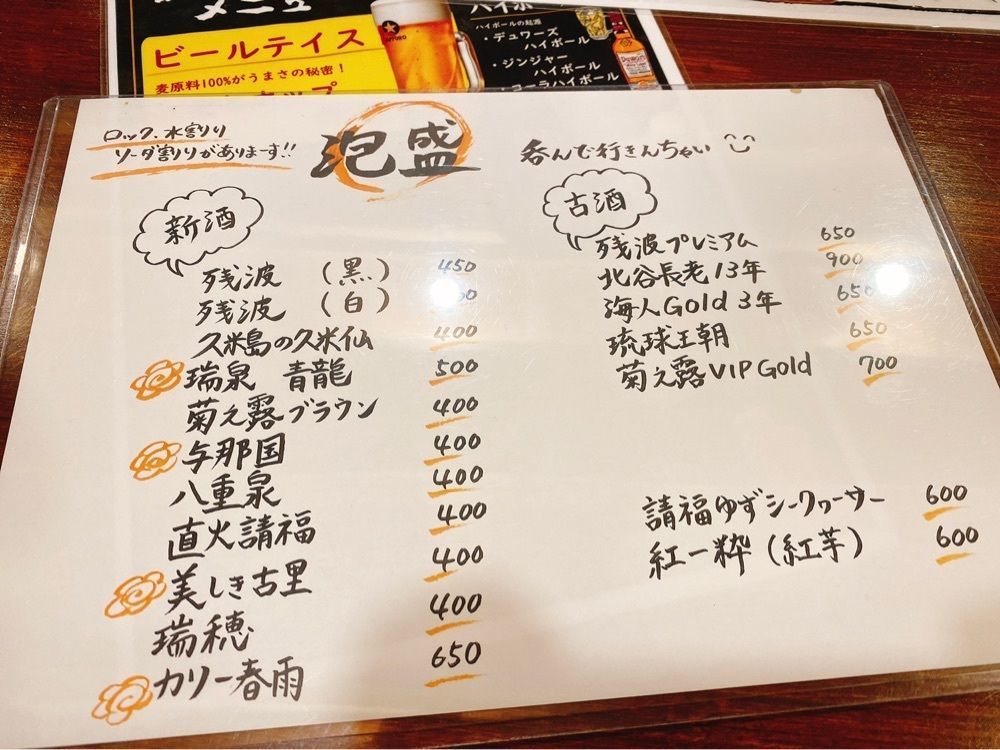 メニュー
ビールテイス
麦原料100%がうまさの秘密!
ハイボールの起源
・デュワーズ
ハイボール
・ジンジャー
ハイボール
・コーラハイボール
ロック、水割り
ソーダ割りがあります!!
泡盛
呑んで行きんちゃい
新酒
残波 (黒) 450
残波 (白)
久米島の久米仙 400
瑞泉 青龍 500
菊之露ブラウン 400
与那国 400
八重泉 400
直火請福 400
美しき古里 400
瑞穂 400
カリー春雨 650
古酒
残波プレミアム 650
北谷長老13年 900
海人Gold 3年 650
琉球王朝 650
菊之露VIP Gold 700
請福ゆずシークヮーサー 600
紅一粋(紅芋) 600